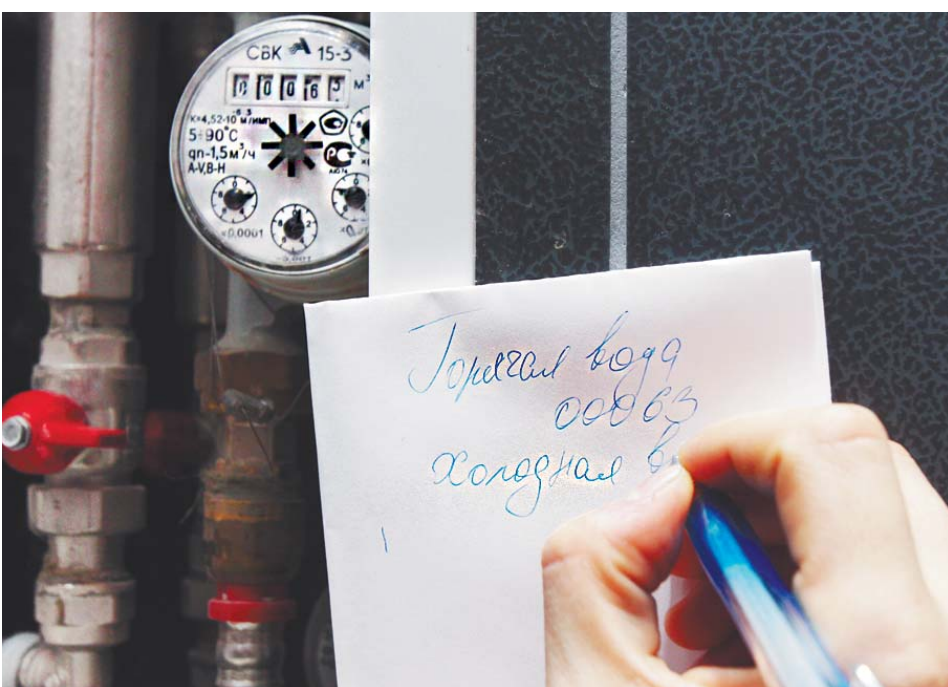 СВК 15-3
00063 м³
К=4,52·10⁻⁵ м³/имп
5÷90°С
qn-1,5м³/ч
A-V,B-H
×0,0001
Горячая вода
00063
холодная в